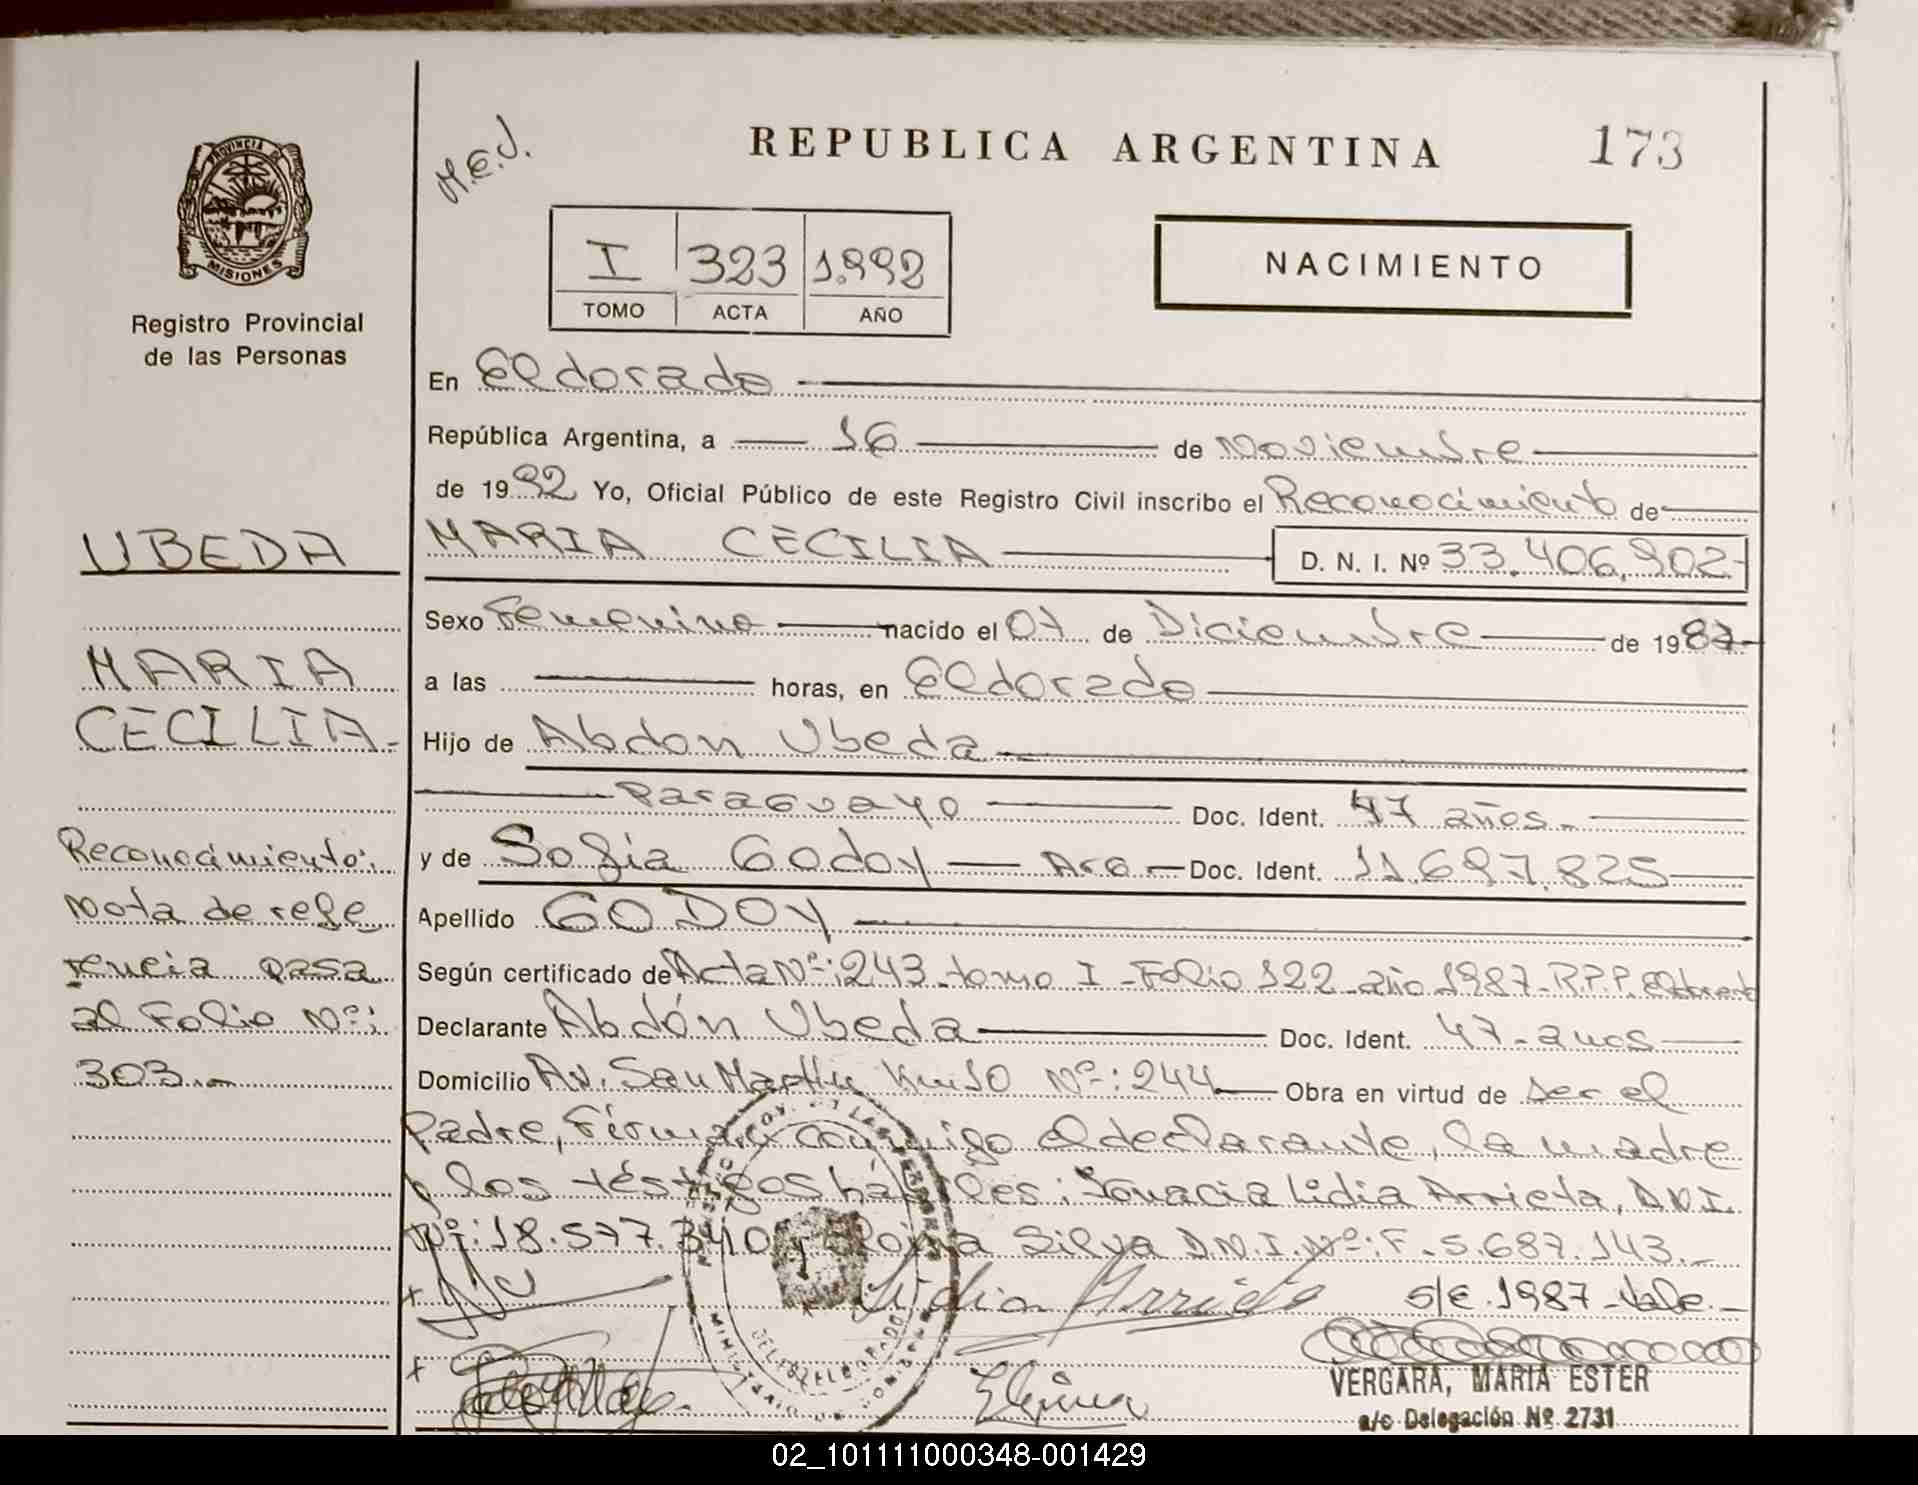 M.E.J.
REPUBLICA ARGENTINA
173
PROVINCIA DE
MISIONES
Registro Provincial
de las Personas
I 323 1.992
TOMO ACTA AÑO
NACIMIENTO
En Eldorado
República Argentina, a 16 de Noviembre
de 1992 Yo, Oficial Público de este Registro Civil inscribo el Reconocimiento de
MARIA CECILIA D. N. I. Nº 33.406.902-
Sexo Femenino nacido el 07 de Diciembre de 1987-
a las horas, en Eldorado
Hijo de Abdon Ubeda
Paraguayo Doc. Ident. 47 años.-
y de Sofia Godoy - Arg - Doc. Ident. 11.697.825
Apellido GODOY
Según certificado de Acta Nº: 243 - tomo I - Folio 122 - año 1987 - R.P.P. Eldorado
Declarante Abdón Ubeda Doc. Ident. 47 - años
Domicilio Av. San Martin Km 10 Nº: 244 Obra en virtud de ser el
Padre, Firman conmigo el declarante, la madre
y los téstigos hábiles: Ignacia Lidia Arrieta, D.N.I.
Nº: 18.577.340 y Eloina Silva D.N.I. Nº: F - 5.687.143.-
Lidia Arrieta s/e. 1987 - Vale.-
VERGARA, MARIA ESTER
a/c Delegación Nº 2731
UBEDA
MARIA
CECILIA-
Reconocimiento:
Nota de refe
rencia pasa
al Folio Nº:
303.-
02_101111000348-001429